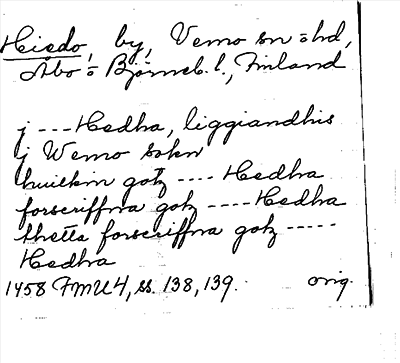 Hiedo, by, Vemo sn o hd,
Åbo o Björneb. l., Finland
j --- Hedha, liggiandhis
j Wemo sokn
huilkin gotz ---- Hedha
forscriffna gotz ---- Hedha
thetta forscriffna gotz -----
Hedha
1458 FMU 4, ss. 138, 139. orig.